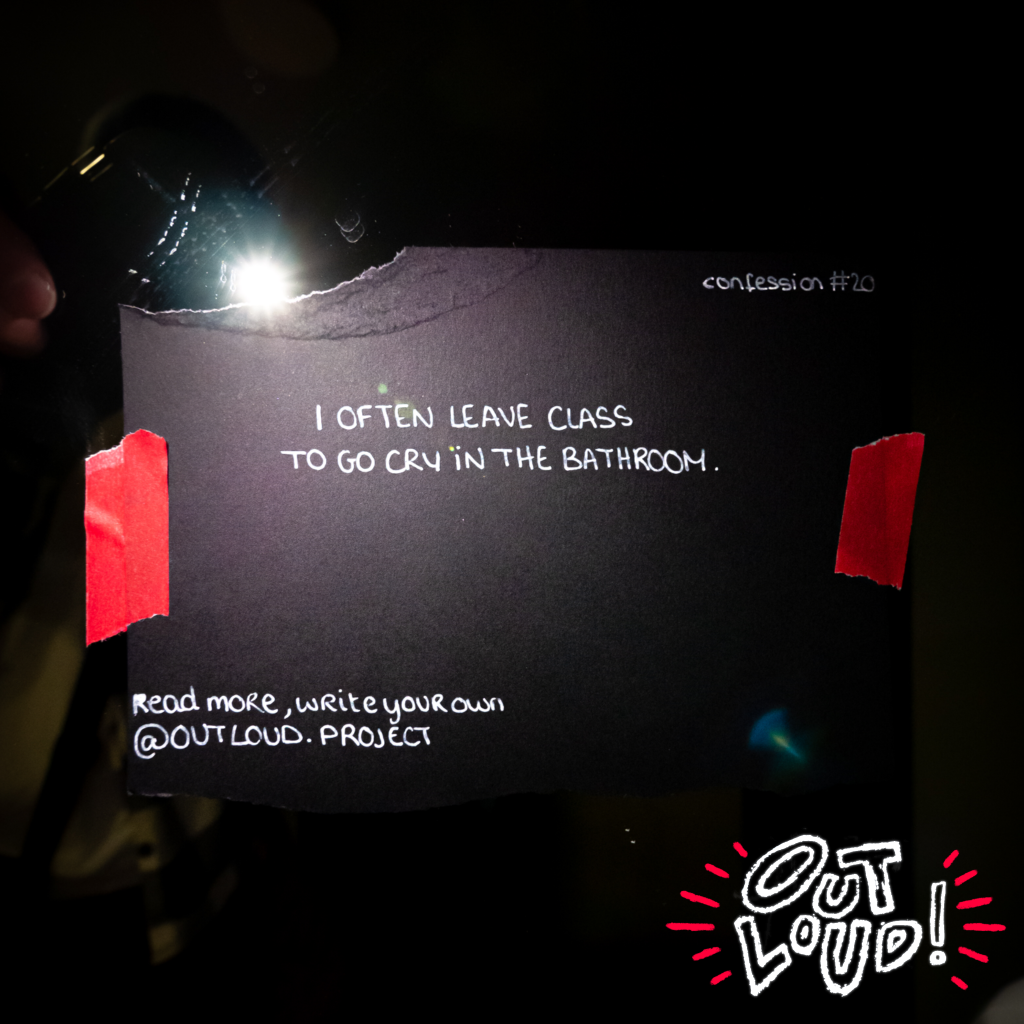 confession #20
I OFTEN LEAVE CLASS
TO GO CRY IN THE BATHROOM.
Read more, write your own
@OUTLOUD.PROJECT
OUT
LOUD!